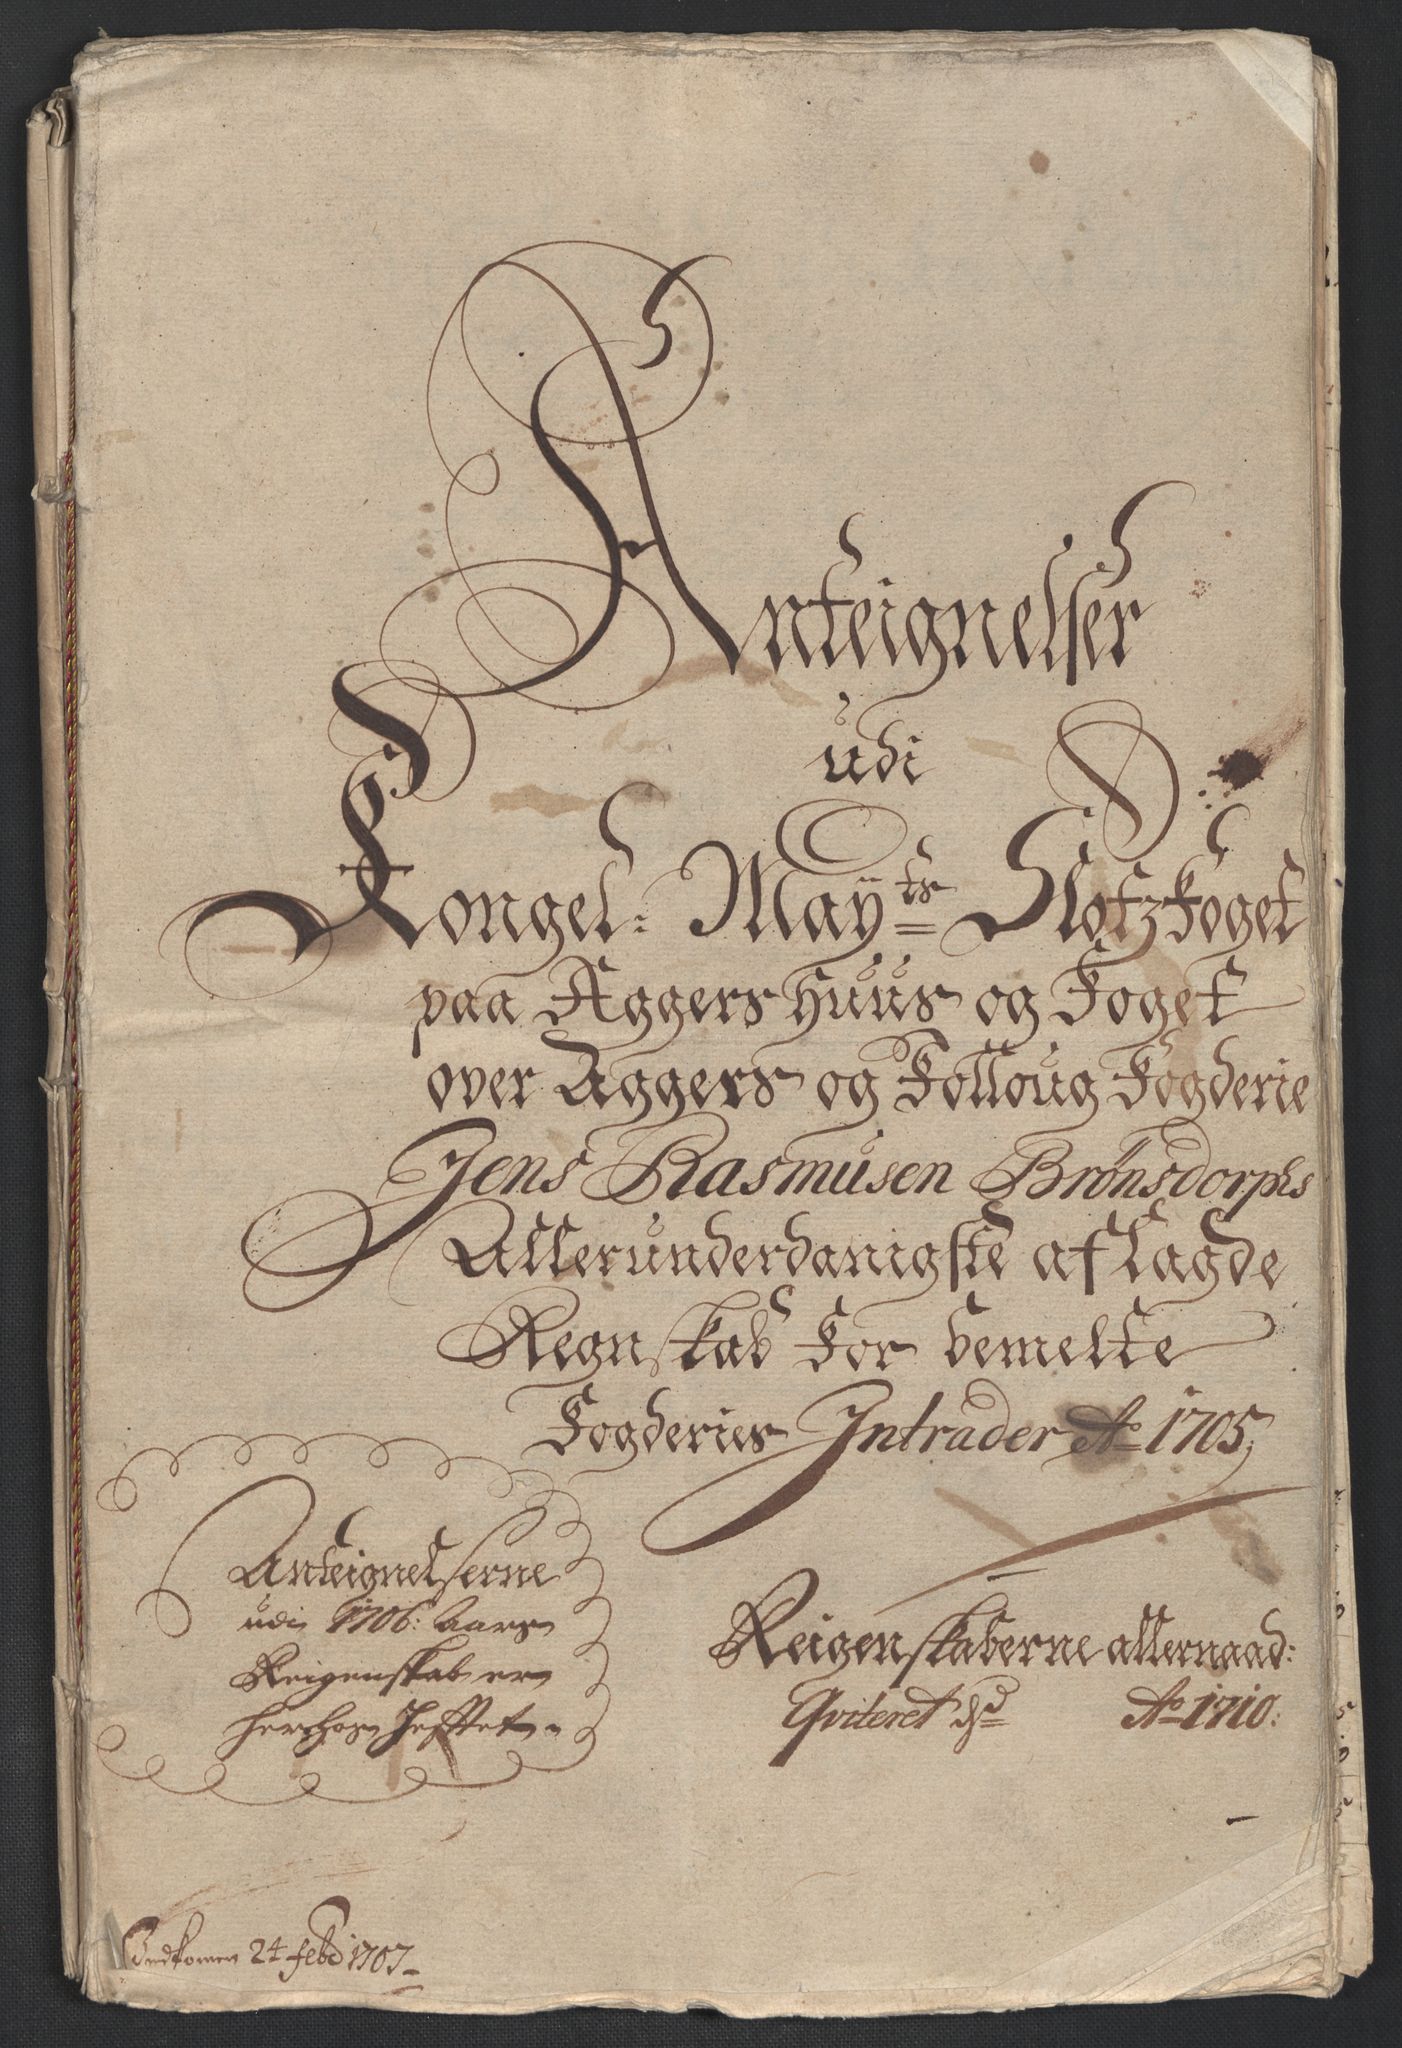 Anteignelser
udi
Kongel: Mayts Slotzfoget
paa Aggershuus og Foget
over Aggers og Folloug Fogderie
Jens Rasmusen Brønsdorphs
Allerunderdanigste aflagde
Regnskab for bemelte
Fogderies Intrader Ao 1705
Anteignelserne
udi 1706: Aars
Reigenskab er
herhos Hefftet.
Reigenskaberne allernaad:
Qviteret d. Ao 1710:
Indkomen 24 febr 1707